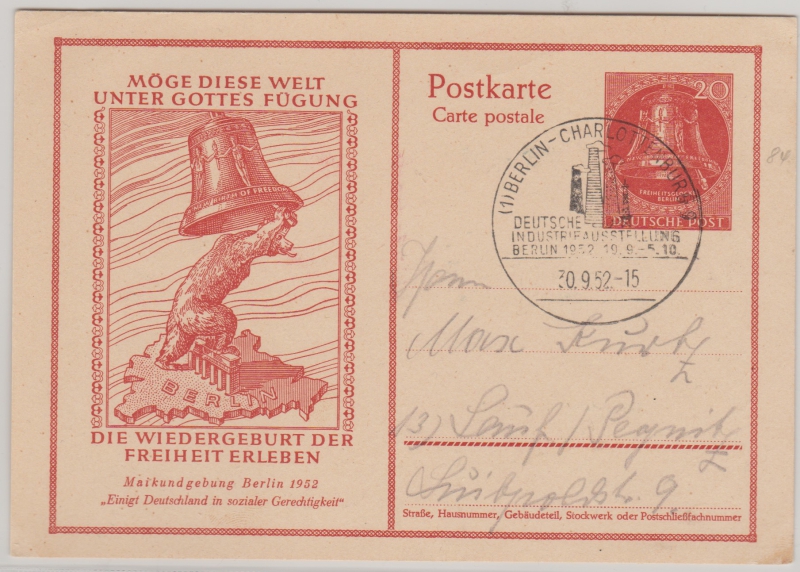 MÖGE DIESE WELT
UNTER GOTTES FÜGUNG
BIRTH OF FREEDOM
BERLIN
DIE WIEDERGEBURT DER
FREIHEIT ERLEBEN
Maikundgebung Berlin 1952
„Einigt Deutschland in sozialer Gerechtigkeit"
Postkarte
Carte postale
20
FREIHEITSGLOCKE
BERLIN
DEUTSCHE POST
84
(1) BERLIN-CHARLOTTENBURG
DEUTSCHE
INDUSTRIEAUSSTELLUNG
BERLIN 1952 19.9.-5.10.
30.9.52.-15
Herrn
Max Kurtz
13) Lauf / Pegnitz
Luitpoldstr. 9.
Straße, Hausnummer, Gebäudeteil, Stockwerk oder Postschließfachnummer